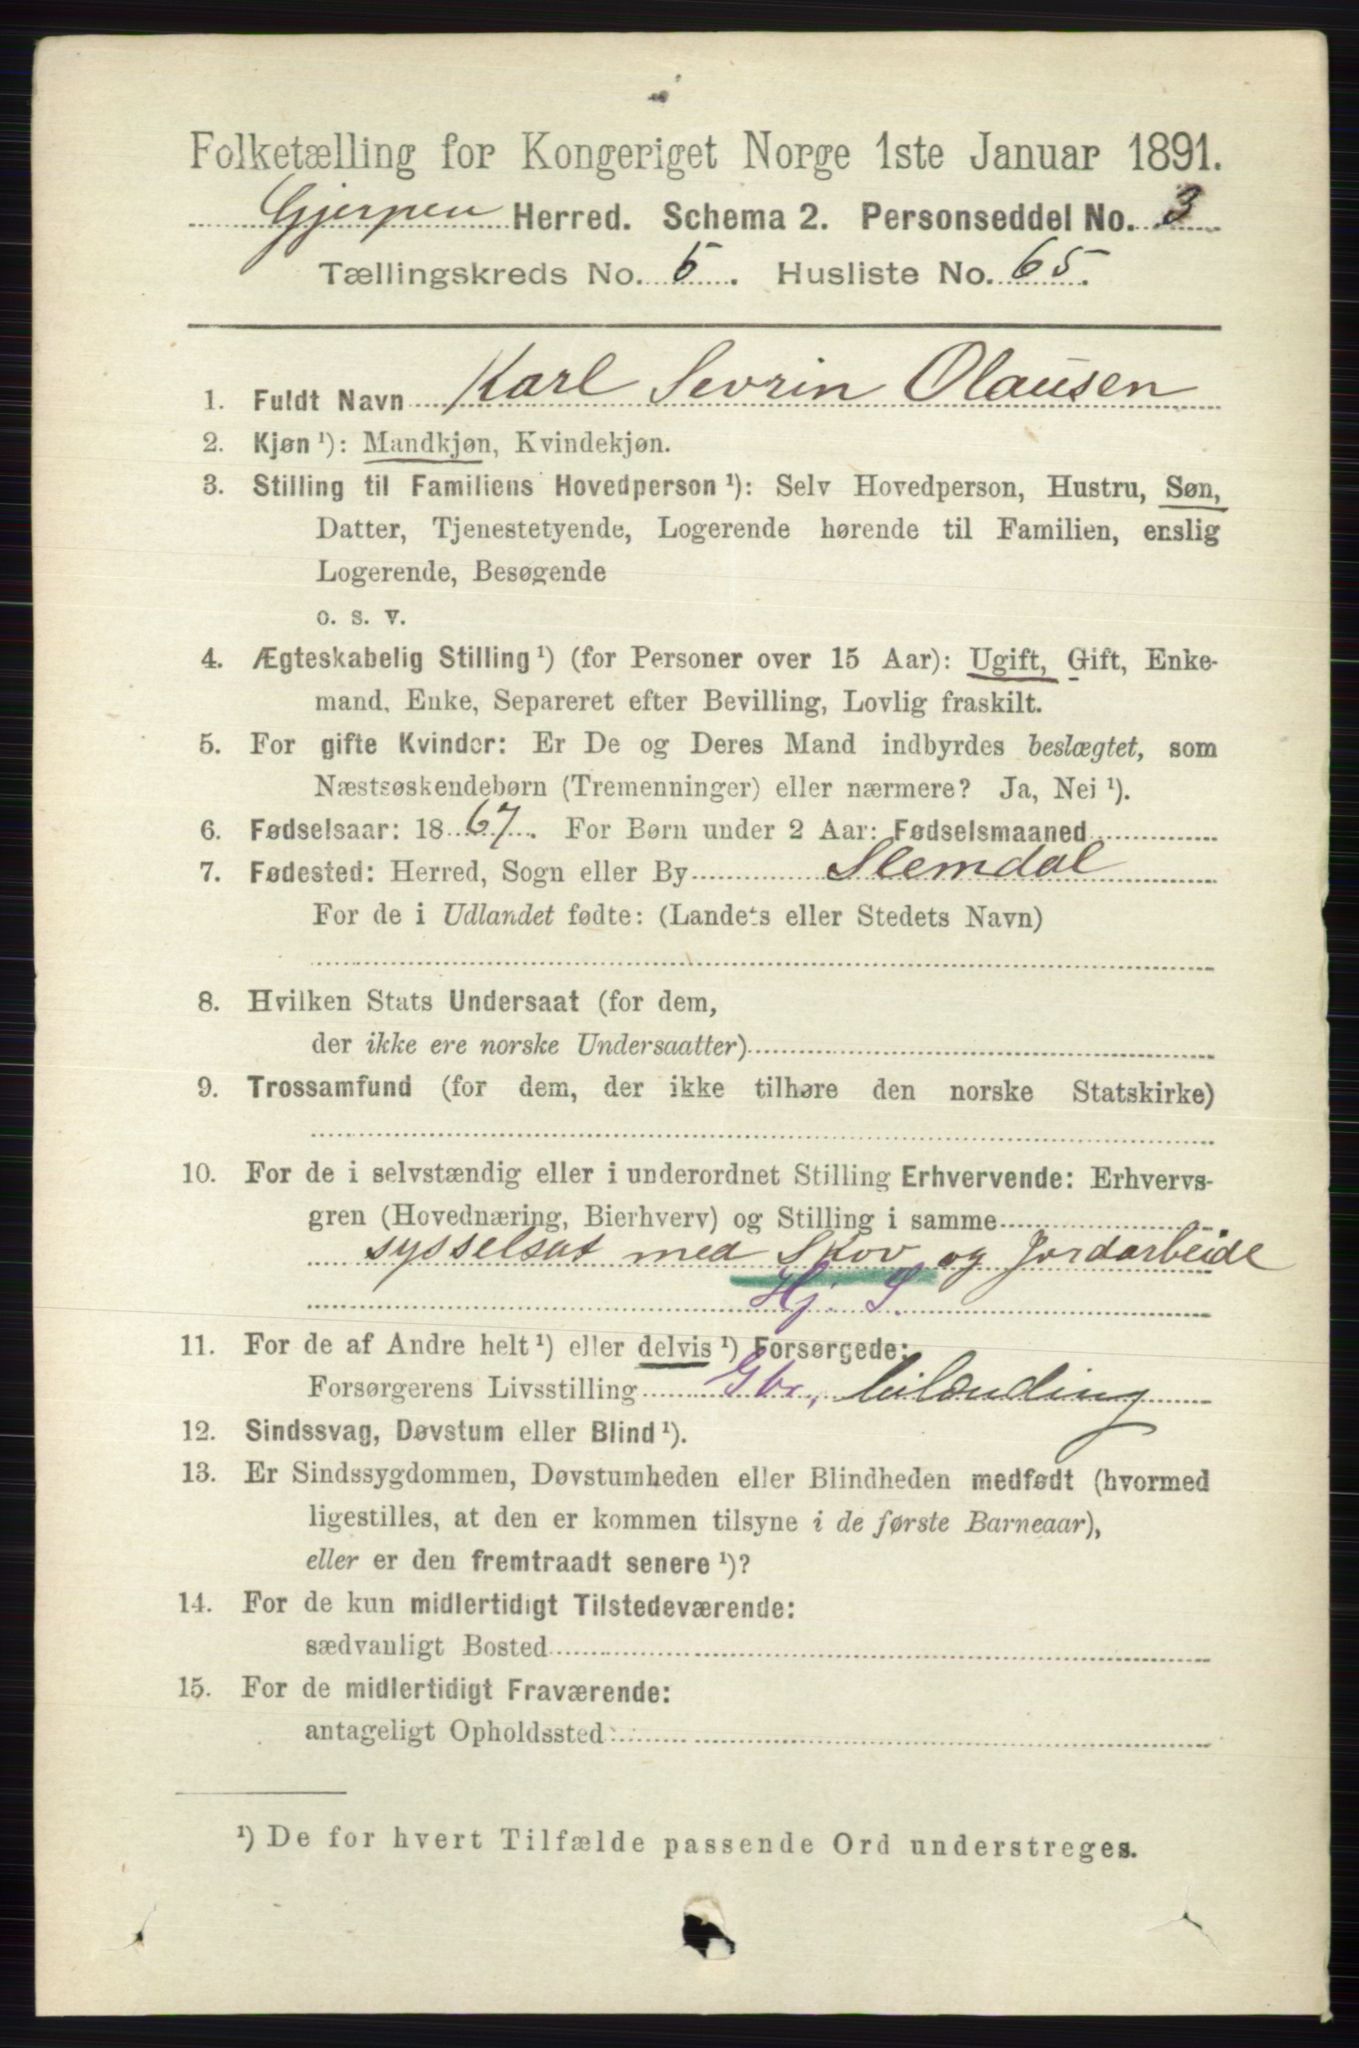 Folketælling for Kongeriget Norge 1ste Januar 1891.
Gjerpen Herred. Schema 2. Personseddel No. 3
Tællingskreds No. 5. Husliste No. 65.
1. Fuldt Navn Karl Sevrin Olausen
2. Kjøn ¹): Mandkjøn, Kvindekjøn.
3. Stilling til Familiens Hovedperson ¹): Selv Hovedperson, Hustru, Søn,
Datter, Tjenestetyende, Logerende hørende til Familien, enslig
Logerende, Besøgende
o. s. v.
4. Ægteskabelig Stilling ¹) (for Personer over 15 Aar): Ugift, Gift, Enke-
mand, Enke, Separeret efter Bevilling, Lovlig fraskilt.
5. For gifte Kvinder: Er De og Deres Mand indbyrdes beslægtet, som
Næstsøskendebørn (Tremenninger) eller nærmere? Ja, Nei ¹).
6. Fødselsaar: 1867. For Børn under 2 Aar: Fødselsmaaned
7. Fødested: Herred, Sogn eller By Slemdal
For de i Udlandet fødte: (Landets eller Stedets Navn)
8. Hvilken Stats Undersaat (for dem,
der ikke ere norske Undersaatter)
9. Trossamfund (for dem, der ikke tilhøre den norske Statskirke)
10. For de i selvstændig eller i underordnet Stilling Erhvervende: Erhvervs-
gren (Hovednæring, Bierhverv) og Stilling i samme
sysselsat med Skov og Jordarbeide
Hj. S.
11. For de af Andre helt ¹) eller delvis ¹) Forsørgede:
Forsørgerens Livsstilling Gbr, leilænding
12. Sindssvag, Døvstum eller Blind ¹).
13. Er Sindssygdommen, Døvstumheden eller Blindheden medfødt (hvormed
ligestilles, at den er kommen tilsyne i de første Barneaar),
eller er den fremtraadt senere ¹)?
14. For de kun midlertidigt Tilstedeværende:
sædvanligt Bosted
15. For de midlertidigt Fraværende:
antageligt Opholdssted
¹) De for hvert Tilfælde passende Ord understreges.